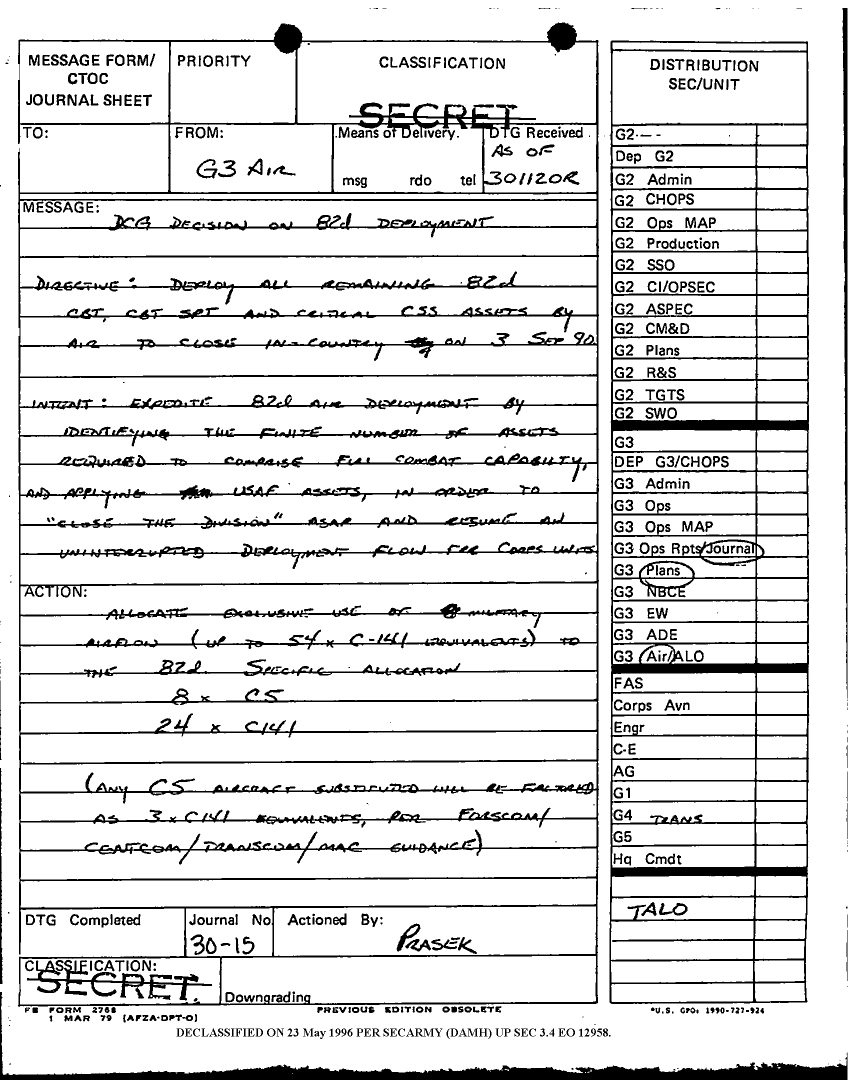 MESSAGE FORM/
CTOC
JOURNAL SHEET
PRIORITY
CLASSIFICATION
SECRET
TO:
FROM:
G3 AIR
Means of Delivery.
msg rdo tel
DTG Received
AS OF
301120R
MESSAGE:
DCG DECISION ON 82d DEPLOYMENT
DIRECTIVE: DEPLOY ALL REMAINING 82d
CBT, CBT SPT AND CRITICAL CSS ASSETS BY
AIR TO CLOSE IN-COUNTRY ON 3 SEP 90
INTENT: EXPEDITE 82d AIR DEPLOYMENT BY
IDENTIFYING THE FINITE NUMBER OF ASSETS
REQUIRED TO COMPRISE FULL COMBAT CAPABILITY,
AND APPLYING USAF ASSETS, IN ORDER TO
"CLOSE THE DIVISION" ASAP AND RESUME AN
UNINTERRUPTED DEPLOYMENT FLOW FOR CORPS UNITS
ACTION:
ALLOCATE EXCLUSIVE USE OF MILITARY
AIRFLOW (UP TO 54 x C-141 EQUIVALENTS) TO
THE 82d. SPECIFIC ALLOCATION
8 x C5
24 x C141
(ANY C5 AIRCRAFT SUBSTITUTED WILL BE FACTORED
AS 3 x C141 EQUIVALENTS, PER FORSCOM/
CENTCOM/TRANSCOM/MAC GUIDANCE)
DTG Completed
Journal No.
30-15
Actioned By:
PRASEK
CLASSIFICATION:
SECRET
Downgrading
FB FORM 2768
1 MAR 79 (AFZA-DPT-O)
PREVIOUS EDITION OBSOLETE
DISTRIBUTION
SEC/UNIT
G2
Dep G2
G2 Admin
G2 CHOPS
G2 Ops MAP
G2 Production
G2 SSO
G2 CI/OPSEC
G2 ASPEC
G2 CM&D
G2 Plans
G2 R&S
G2 TGTS
G2 SWO
G3
DEP G3/CHOPS
G3 Admin
G3 Ops
G3 Ops MAP
G3 Ops Rpts/Journal
G3 Plans
G3 NBCE
G3 EW
G3 ADE
G3 Air/ALO
FAS
Corps Avn
Engr
C-E
AG
G1
G4 TRANS
G5
Hq Cmdt
TALO
*U.S. GPO: 1990-727-924
DECLASSIFIED ON 23 May 1996 PER SECARMY (DAMH) UP SEC 3.4 EO 12958.